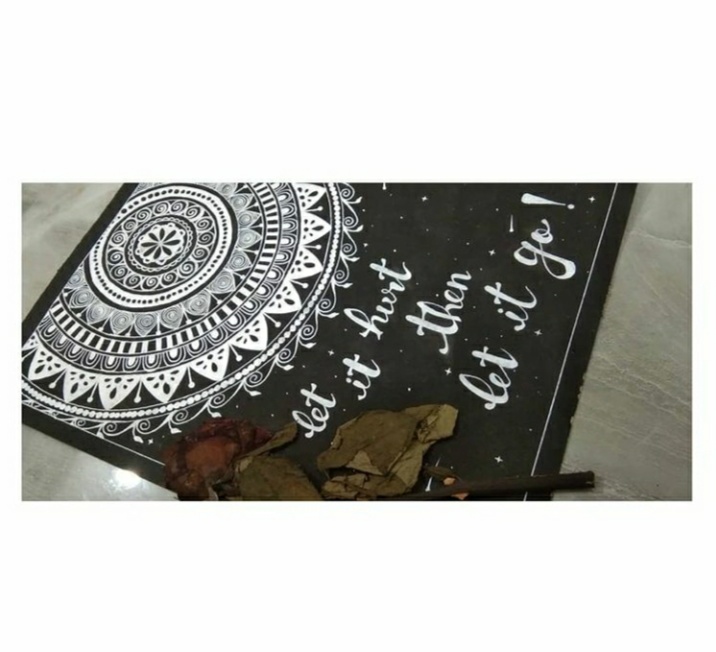 let it hurt
then
let it go!